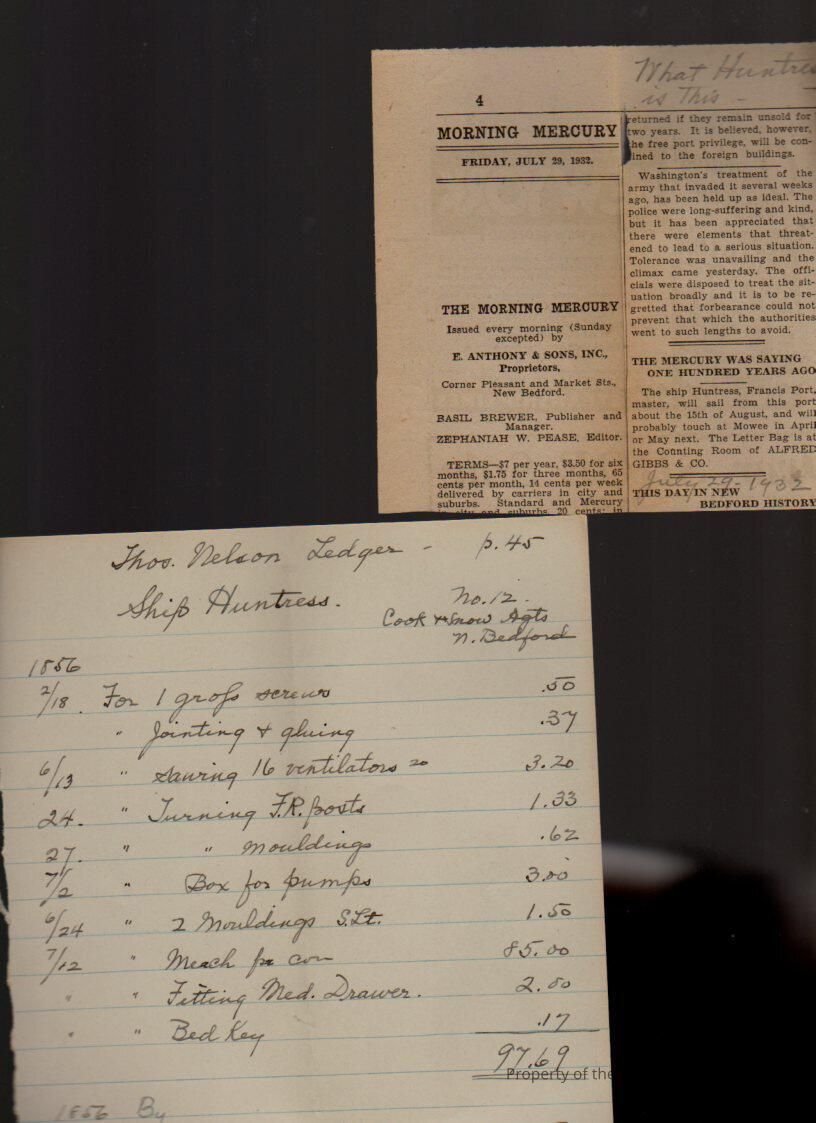 What Huntres
is This —
4
MORNING MERCURY
FRIDAY, JULY 29, 1932.
THE MORNING MERCURY
Issued every morning (Sunday
excepted) by
E. ANTHONY & SONS, INC.,
Proprietors,
Corner Pleasant and Market Sts.,
New Bedford.
BASIL BREWER, Publisher and
Manager.
ZEPHANIAH W. PEASE, Editor.
TERMS—$7 per year, $3.50 for six
months, $1.75 for three months, 65
cents per month, 14 cents per week
delivered by carriers in city and
suburbs. Standard and Mercury
in city and suburbs, 20 cents; in
returned if they remain unsold for
two years. It is believed, however,
the free port privilege, will be con-
ined to the foreign buildings.
Washington's treatment of the
army that invaded it several weeks
ago, has been held up as ideal. The
police were long-suffering and kind,
but it has been appreciated that
there were elements that threat-
ened to lead to a serious situation.
Tolerance was unavailing and the
climax came yesterday. The offi-
cials were disposed to treat the sit-
uation broadly and it is to be re-
gretted that forbearance could not
prevent that which the authorities
went to such lengths to avoid.
THE MERCURY WAS SAYING
ONE HUNDRED YEARS AGO
The ship Huntress, Francis Port,
master, will sail from this port
about the 15th of August, and will
probably touch at Mowee in April
or May next. The Letter Bag is at
the Counting Room of ALFRED
GIBBS & CO.
July 29-1932
THIS DAY IN NEW
BEDFORD HISTORY
Thos. Nelson Ledger — p. 45
Ship Huntress. No. 12.
Cook & Snow Agts
N. Bedford
1856
2/18. For 1 gross screws .50
" Jointing & gluing .37
6/13 " sawing 16 ventilators 20 3.20
24. " Turning F.R. posts 1.33
27. " " Mouldings .62
7/2 " Box for pumps 3.00
6/24 " 2 Mouldings S.Lt. 1.50
7/12 " 85.00
" " Fitting Med. Drawer. 2.00
" " Bed Key .17
97.69
Property of the
1856 By